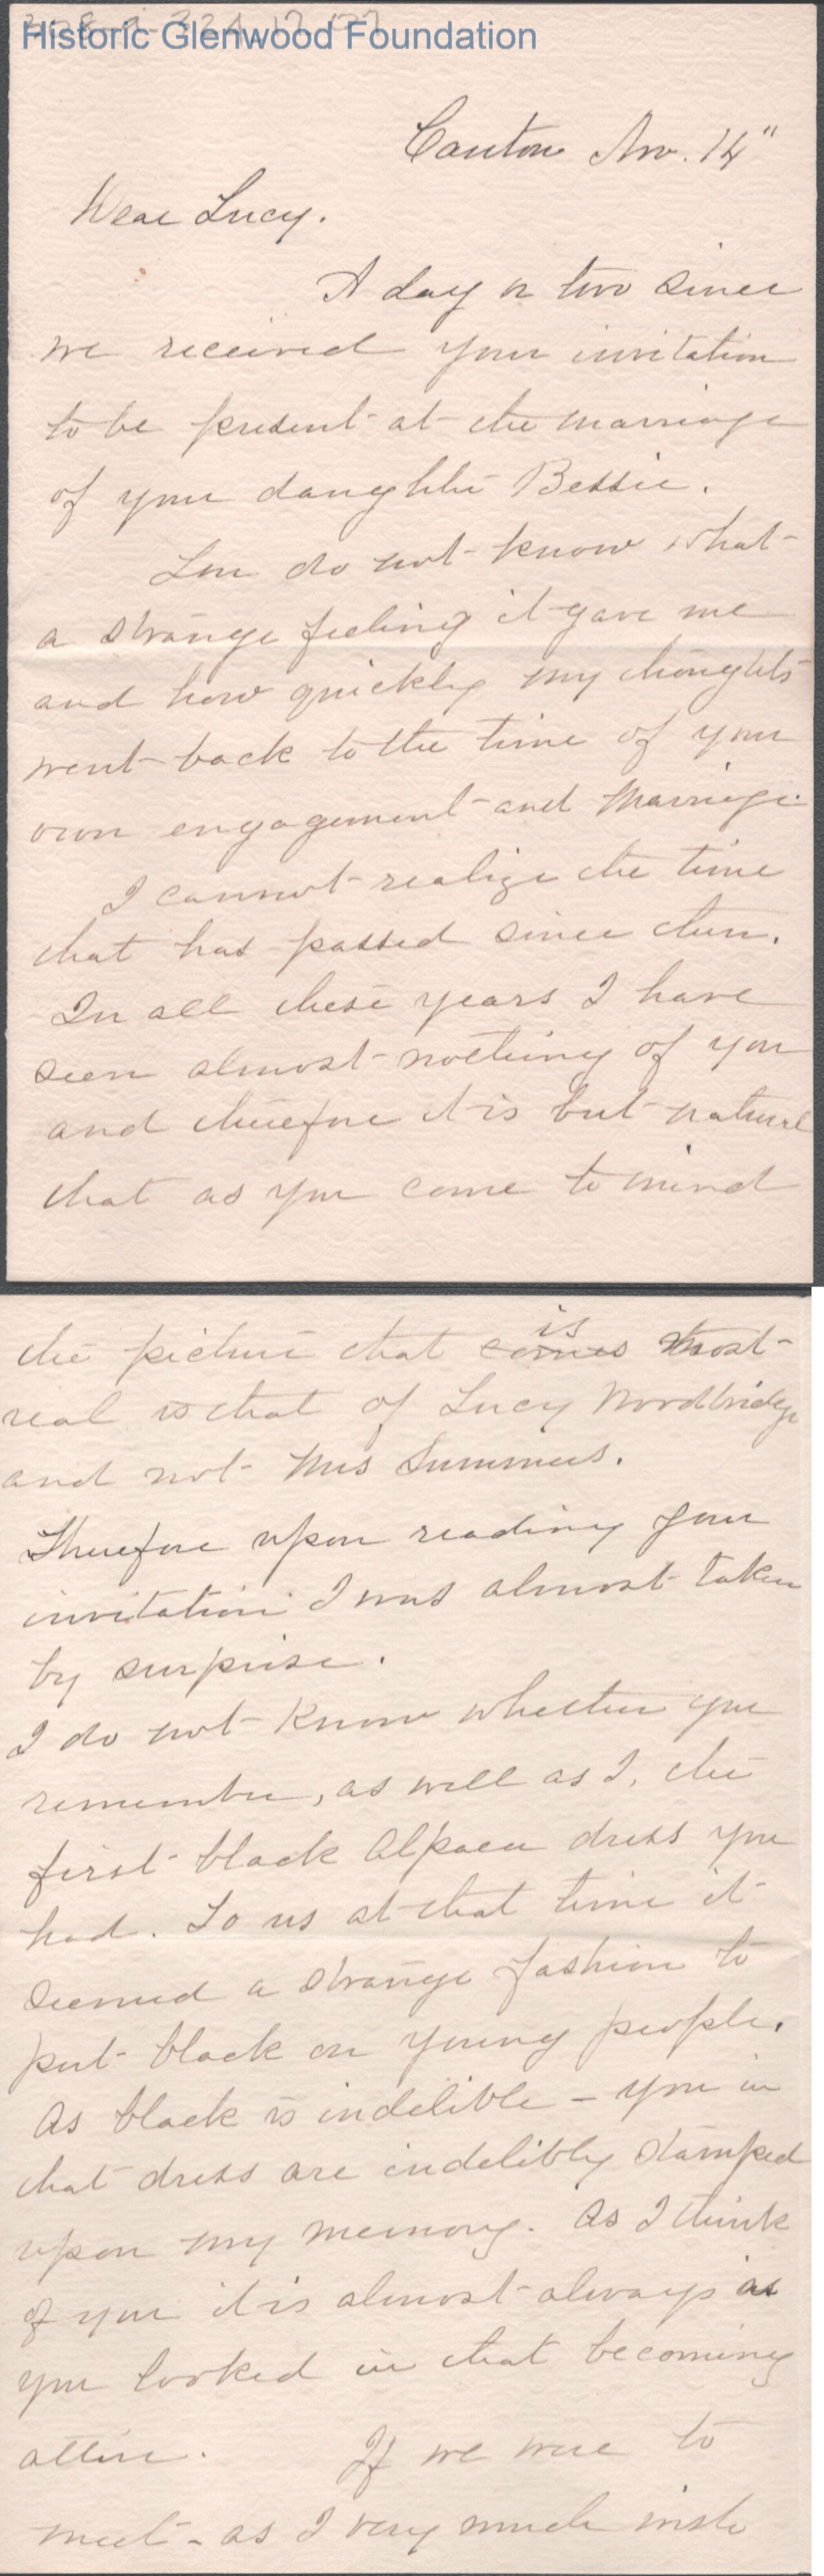 Historic Glenwood Foundation
Canton Nov. 14"
Dear Lucy.
A day or two since
we received your invitation
to be present at the marriage
of your daughter Bessie.
You do not know what
a strange feeling it gave me
and how quickly my thoughts
went back to the time of your
own engagement and marriage.
I cannot realize the time
that has passed since then.
In all these years I have
seen almost nothing of you
and therefore it is but natural
that as you come to mind
the picture that comes is most
real is that of Lucy Woodbridge
and not Mrs Summers.
Therefore upon reading your
invitation I was almost taken
by surprise.
I do not know whether you
remember, as well as I, the
first black Alpaca dress you
had. To us at that time it
seemed a strange fashion to
put black on young people.
As black is indelible - you in
that dress are indelibly stamped
upon my memory. As I think
of you it is almost always as
you looked in that becoming
attire. If we were to
meet - as I very much wish